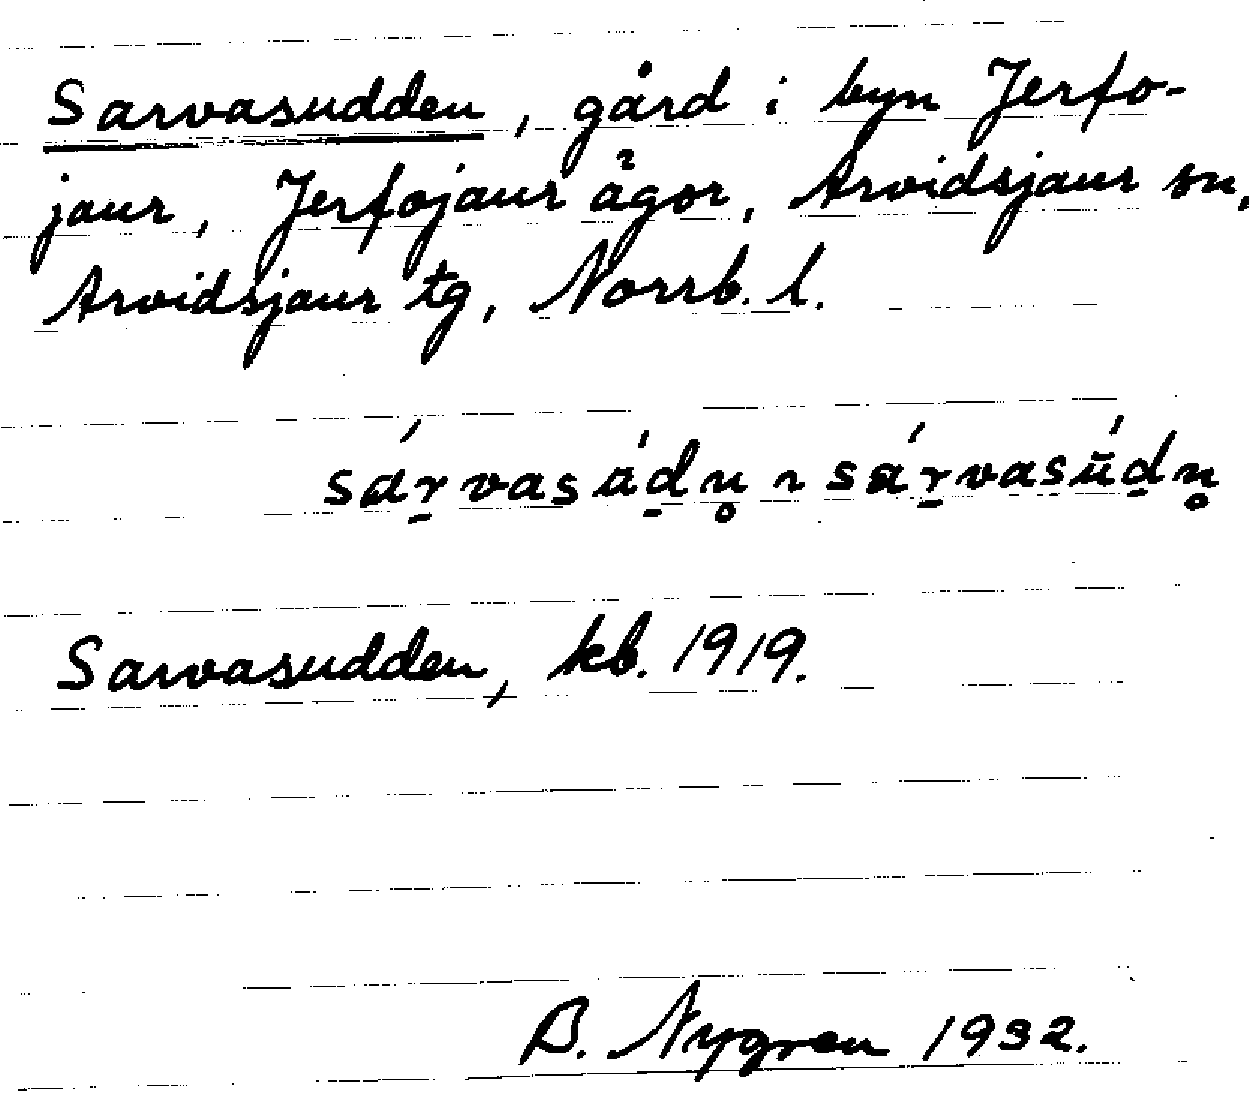 Sarvasudden, gård i byn Jerfo-
jaur, Jerfojaur ägor, Arvidsjaur sn,
Arvidsjaur tg, Norrb. l.
sár̠vasúd̠n̥ ~ sár̠vasū́d̠n̥
Sarvasudden, kb. 1919.
B. Nygren 1932.